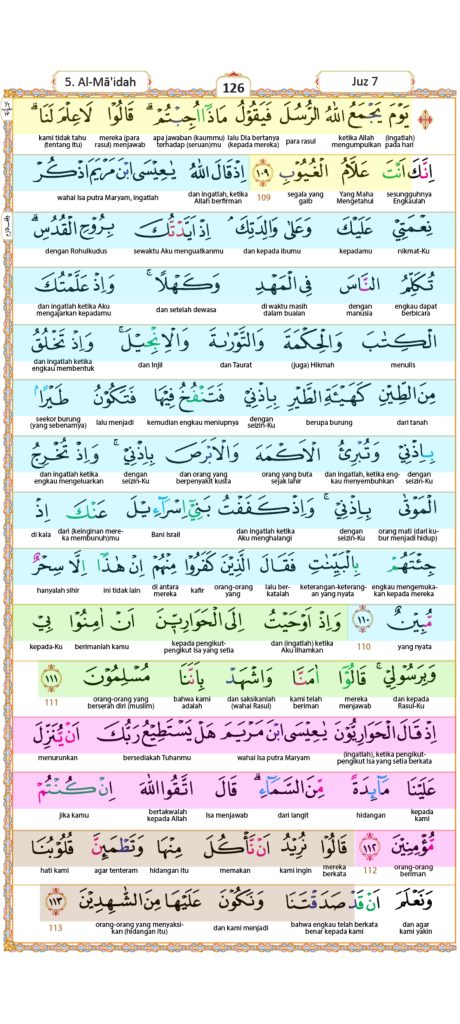 5. Al-Mā'idah 126 Juz 7
يَوْمَ يَجْمَعُ اللّٰهُ الرُّسُلَ فَيَقُوْلُ مَاذَآ اُجِبْتُمْ ۗ قَالُوْا لَا عِلْمَ لَنَا ۗ
(ingatlah) pada hari ketika Allah mengumpulkan para rasul lalu Dia bertanya (kepada mereka) apa jawaban (kaummu) terhadap (seruan)mu mereka (para rasul) menjawab kami tidak tahu (tentang itu)
اِنَّكَ اَنْتَ عَلَّامُ الْغُيُوْبِ ۝١٠٩ اِذْ قَالَ اللّٰهُ يٰعِيْسَى ابْنَ مَرْيَمَ اذْكُرْ
sesungguhnya Engkaulah Yang Maha Mengetahui segala yang gaib 109 dan ingatlah, ketika Allah berfirman wahai Isa putra Maryam, ingatlah
نِعْمَتِيْ عَلَيْكَ وَعَلٰى وَالِدَتِكَ ۘ اِذْ اَيَّدْتُّكَ بِرُوْحِ الْقُدُسِ ۗ
nikmat-Ku kepadamu dan kepada ibumu sewaktu Aku menguatkanmu dengan Rohulkudus
تُكَلِّمُ النَّاسَ فِى الْمَهْدِ وَكَهْلًا ۚ وَاِذْ عَلَّمْتُكَ
engkau dapat berbicara dengan manusia di waktu masih dalam buaian dan setelah dewasa dan ingatlah ketika Aku mengajarkan kepadamu
الْكِتٰبَ وَالْحِكْمَةَ وَالتَّوْرٰىةَ وَالْاِنْجِيْلَ ۚ وَاِذْ تَخْلُقُ
menulis (juga) Hikmah dan Taurat dan Injil dan ingatlah ketika engkau membentuk
مِنَ الطِّيْنِ كَهَيْـَٔةِ الطَّيْرِ بِاِذْنِيْ فَتَنْفُخُ فِيْهَا فَتَكُوْنُ طَيْرًا ۢ
dari tanah berupa burung dengan seizin-Ku kemudian engkau meniupnya lalu menjadi seekor burung (yang sebenarnya)
بِاِذْنِيْ وَتُبْرِئُ الْاَكْمَهَ وَالْاَبْرَصَ بِاِذْنِيْ ۚ وَاِذْ تُخْرِجُ
dengan seizin-Ku dan ingatlah, ketika engkau menyembuhkan orang yang buta sejak lahir dan orang yang berpenyakit kusta dengan seizin-Ku dan ingatlah ketika engkau mengeluarkan
الْمَوْتٰى بِاِذْنِيْ ۚ وَاِذْ كَفَفْتُ بَنِيْٓ اِسْرَاۤءِيْلَ عَنْكَ اِذْ
orang mati (dari kubur menjadi hidup) dengan seizin-Ku dan ingatlah ketika Aku menghalangi Bani Israil dari (keinginan mereka membunuh)mu di kala
جِئْتَهُمْ بِالْبَيِّنٰتِ فَقَالَ الَّذِيْنَ كَفَرُوْا مِنْهُمْ اِنْ هٰذَآ اِلَّا سِحْرٌ
engkau mengemukakan kepada mereka keterangan-keterangan yang nyata lalu berkatalah orang-orang kafir di antara mereka ini tidak lain hanyalah sihir
مُّبِيْنٌ ۝١١٠ وَاِذْ اَوْحَيْتُ اِلَى الْحَوَارِيّٖنَ اَنْ اٰمِنُوْا بِيْ
yang nyata 110 dan (ingatlah) ketika Aku ilhamkan kepada pengikut-pengikut Isa yang setia berimanlah kamu kepada-Ku
وَبِرَسُوْلِيْ ۚ قَالُوْٓا اٰمَنَّا وَاشْهَدْ بِاَنَّنَا مُسْلِمُوْنَ ۝١١١
dan kepada Rasul-Ku mereka menjawab kami telah beriman dan saksikanlah (wahai Rasul) bahwa kami adalah orang-orang yang berserah diri (muslim) 111
اِذْ قَالَ الْحَوَارِيُّوْنَ يٰعِيْسَى ابْنَ مَرْيَمَ هَلْ يَسْتَطِيْعُ رَبُّكَ اَنْ يُّنَزِّلَ
(ingatlah), ketika pengikut-pengikut Isa yang setia berkata wahai Isa putra Maryam bersediakah Tuhanmu menurunkan
عَلَيْنَا مَاۤىِٕدَةً مِّنَ السَّمَاۤءِ ۗ قَالَ اتَّقُوا اللّٰهَ اِنْ كُنْتُمْ
kepada kami hidangan dari langit Isa menjawab bertakwalah kepada Allah jika kamu
مُّؤْمِنِيْنَ ۝١١٢ قَالُوْا نُرِيْدُ اَنْ نَّأْكُلَ مِنْهَا وَتَطْمَىِٕنَّ قُلُوْبُنَا
orang-orang beriman 112 mereka berkata kami ingin memakan hidangan itu agar tenteram hati kami
وَنَعْلَمَ اَنْ قَدْ صَدَقْتَنَا وَنَكُوْنَ عَلَيْهَا مِنَ الشّٰهِدِيْنَ ۝١١٣
dan agar kami yakin bahwa engkau telah berkata benar kepada kami dan kami menjadi orang-orang yang menyaksikan (hidangan itu) 113